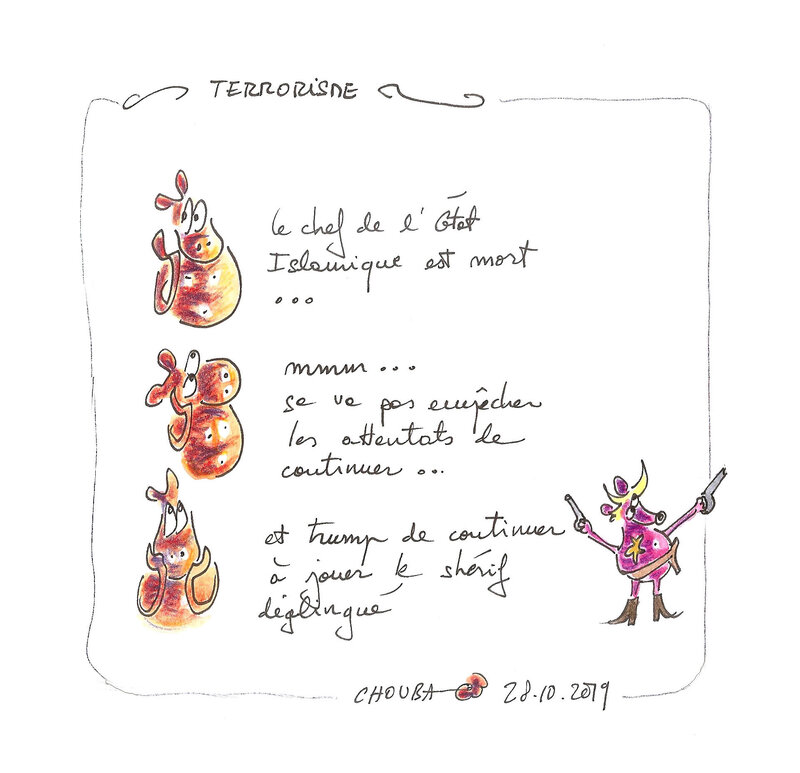 TERRORISME
le chef de l'état
Islamique est mort
...
mmm ...
sa va pas empêcher
les attentats de
continuer ...
et trump de continuer
à jouer le shérif
déglingué
CHOUBA 28.10.2019